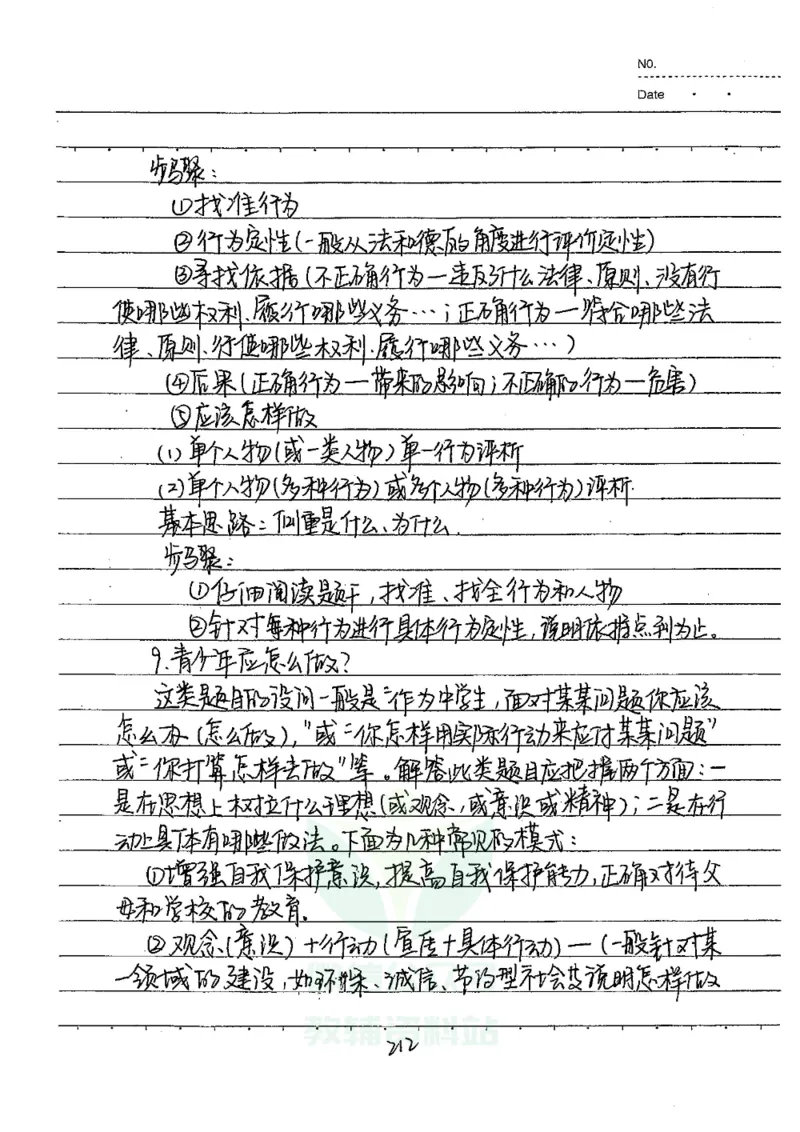 NO.
Date
步骤:
①找准行为
②行为定性(一般从法和德的角度进行评价定性)
③寻找依据(不正确行为—违反了什么法律、原则、没有行
使哪些权利、履行哪些义务…;正确行为—符合哪些法
律、原则、行使哪些权利、履行哪些义务…)
④后果(正确行为—带来的影响;不正确的行为—危害)
⑤应该怎样做
(1)单个人物(或一类人物)单一行为评析
(2)单个人物(多种行为)或多个人物(多种行为)评析.
基本思路:侧重是什么、为什么.
步骤:
①仔细阅读题干,找准、找全行为和人物
②针对每种行为进行具体行为定性,说明依据点到为止。
9.青少年应怎么做?
这类题目的设问一般是:“作为中学生,面对某某问题你应该
怎么办(怎么做),”或:“你怎样用实际行动来应对某某问题”
或:“你打算怎样去做”等。解答此类题目应把握两个方面:一
是在思想上树立什么理想(或观念、或意识或精神);二是在行
动上具体有哪些做法。下面为几种常见的模式:
①增强自我保护意识,提高自我保护能力,正确对待父
母和学校的教育.
②观念(意识)+行动(宣传+具体行动)—(一般针对某
一领域的建设,如环保、诚信、节约型社会等说明怎样做
教辅资料站
212